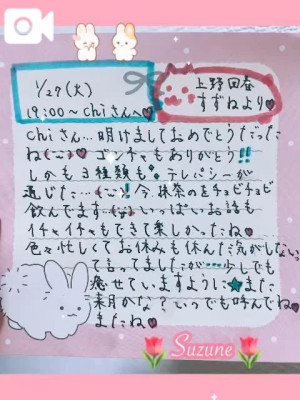 1/27(火)
19:00〜 Chiさんへ
上野回春
すずねより
Chiさん…明けましておめでとうだった
ね(;_;) ゴンチャもありがとう!!
しかも3種類も。テレパシーが
通じた…(;_;)! 今抹茶のをチョビチョビ
飲んでます(;_;)いっぱいお話も
イチャイチャもできて楽しかったね
色々忙しくてお休みも休んだ気がしない
って言ってましたが…少しでも
癒せていますように★また
来月かな?いつでも呼んでね
またね
Suzune